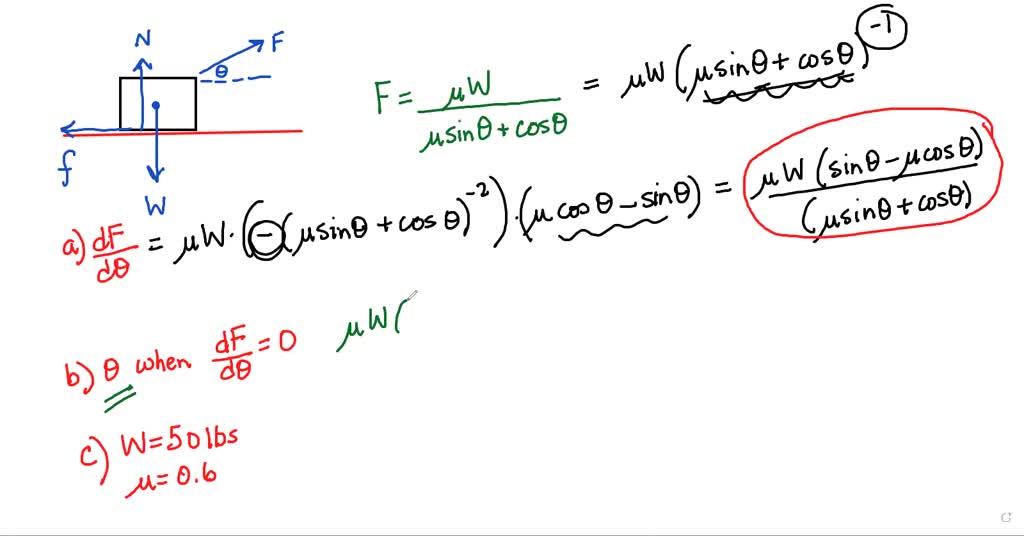 N
F
θ
f
W
F = μW / (μsinθ + cosθ) = μW (μsinθ + cosθ)^-1
a) dF/dθ = μW · (-(μsinθ + cosθ)^-2) · (μcosθ - sinθ) = μW (sinθ - μcosθ) / (μsinθ + cosθ)
b) θ when dF/dθ = 0 μW(
c) W = 50 lbs
μ = 0.6